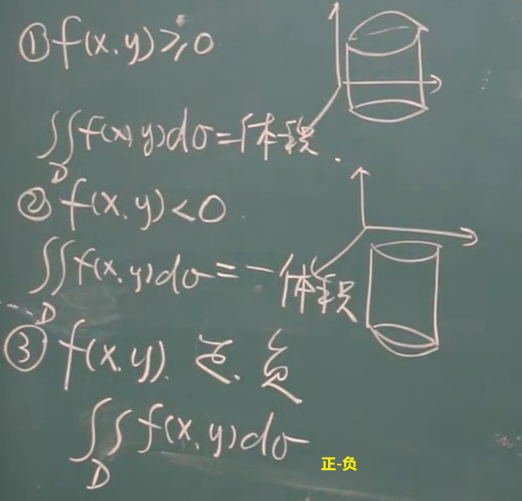 ①f(x,y)≥0
∬f(x,y)dσ=体积.
D
②f(x,y)<0.
∬f(x,y)dσ=-体积
D
③f(x,y).正.负
∬f(x,y)dσ
D
正-负